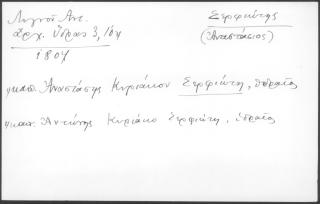 Λιγνοῦ Ἀντ.
Ἀρχ. Ὕδρας 3, 164
1807
Σερφιώτης
(Ἀναστάσιος)
καπ. Ἀναστάσης Κυριάκου Σερφιώτη, ὑδραῖος
καπ. Ἀντώνης Κυριάκο Σερφιώτη, ὑδραῖος